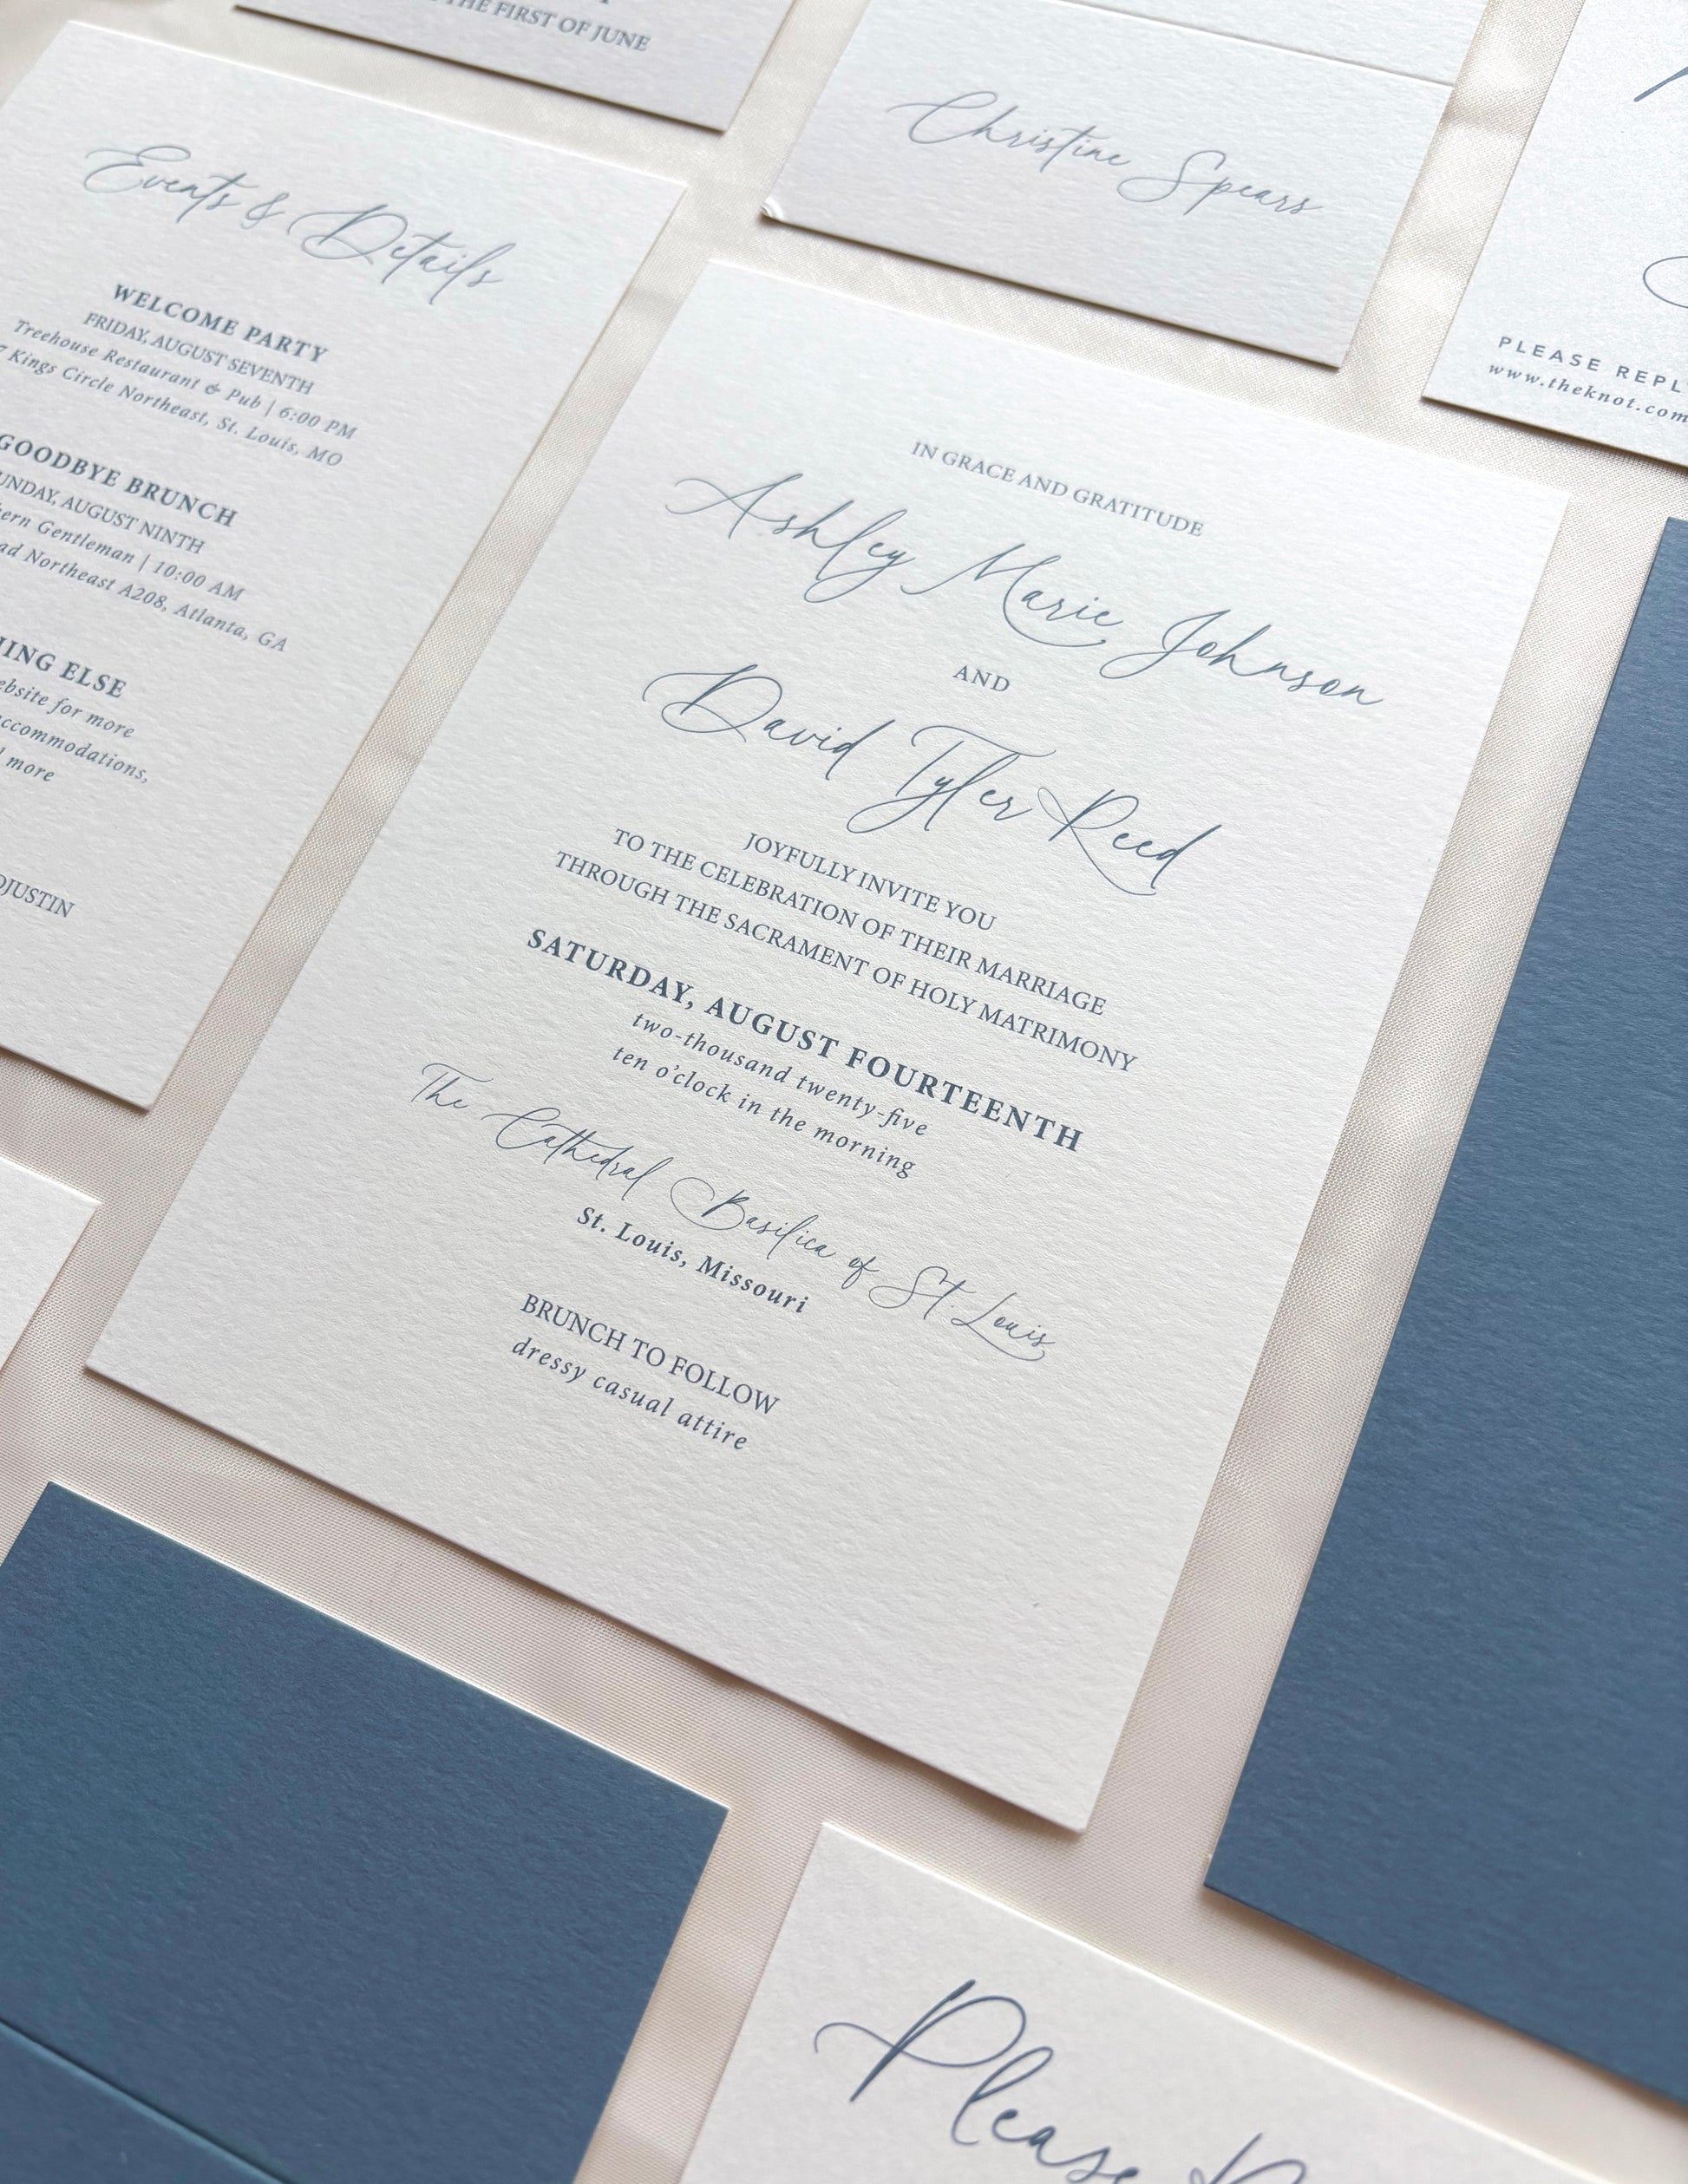 THE FIRST OF JUNE
Christine Spears
PLEASE REPLY
www.theknot.com
Events & Details
WELCOME PARTY
FRIDAY, AUGUST SEVENTH
Treehouse Restaurant & Pub | 6:00 PM
7 Kings Circle Northeast, St. Louis, MO
GOODBYE BRUNCH
SUNDAY, AUGUST NINTH
Gentleman | 10:00 AM
Northeast A208, Atlanta, GA
ELSE
for more
accommodations,
more
IN GRACE AND GRATITUDE
Ashley Marie Johnson
AND
David Tyler Reed
JOYFULLY INVITE YOU
TO THE CELEBRATION OF THEIR MARRIAGE
THROUGH THE SACRAMENT OF HOLY MATRIMONY
SATURDAY, AUGUST FOURTEENTH
two-thousand twenty-five
ten o'clock in the morning
The Cathedral Basilica of St. Louis
St. Louis, Missouri
BRUNCH TO FOLLOW
dressy casual attire
Please